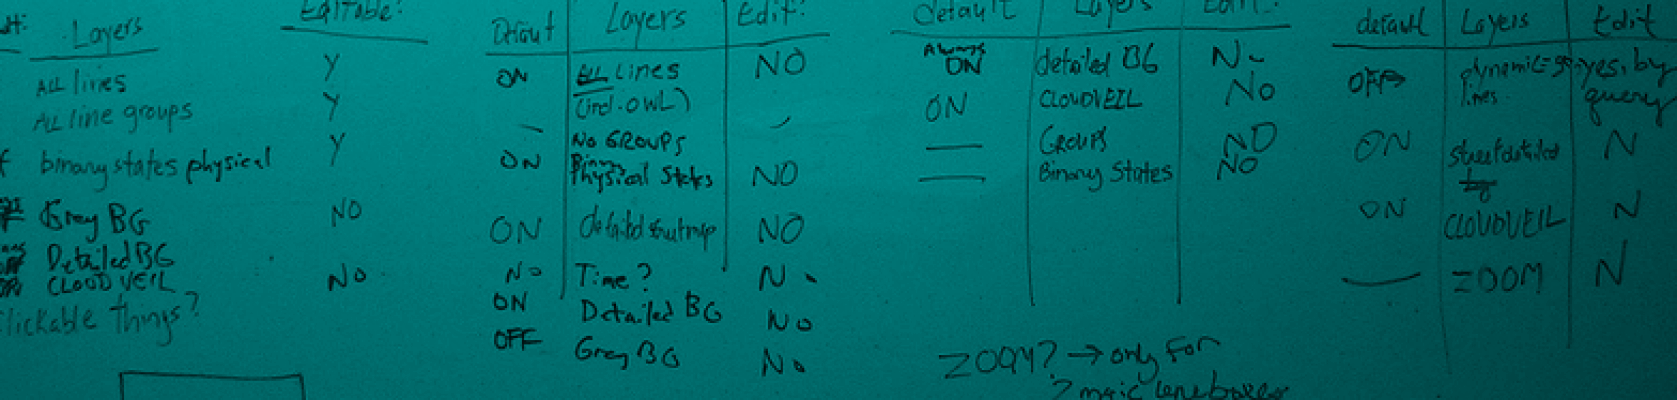 Layers Editable?
ALL lines Y
ALL line groups Y
binary states physical Y
Grey BG NO
Detailed BG
CLOUDVEIL NO
Clickable things?
Defaut Layers Edit?
ON ALL Lines NO
(incl. OWL)
— No GROUPS —
ON Binary Physical States NO
ON detailed NO
No Time? N
ON Detailed BG No
OFF Grey BG No
default Layers Edit?
Always ON detailed BG N
ON CLOUDVEIL No
— Groups NO
— Binary States NO
ZOOM? → only for
default Layers Edit
OFF dynamic lines yes, by query
ON street detailed N
ON CLOUDVEIL N
— ZOOM N